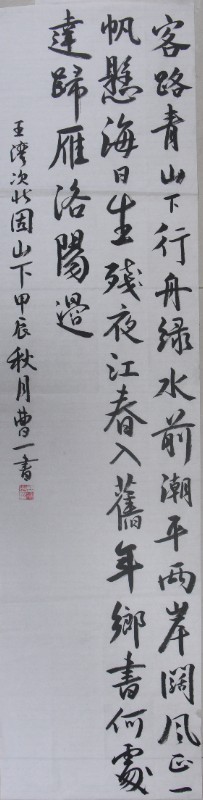 客路青山下行舟綠水前潮平兩岸闊風正一
帆懸海日生殘夜江春入舊年鄉書何處
達歸雁洛陽邊
王灣次北固山下甲辰秋月曹一書